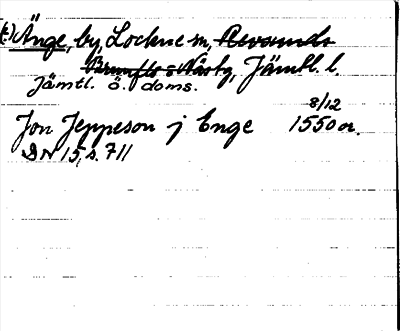 (t.) Änge, by, Lockne sn, Revsunds
Brunflo o Näs tg, Jämtl. l.
Jämtl. ö. doms.
Jon Jeppeson j Enge 8/12 1550 or.
DN 15, s. 711